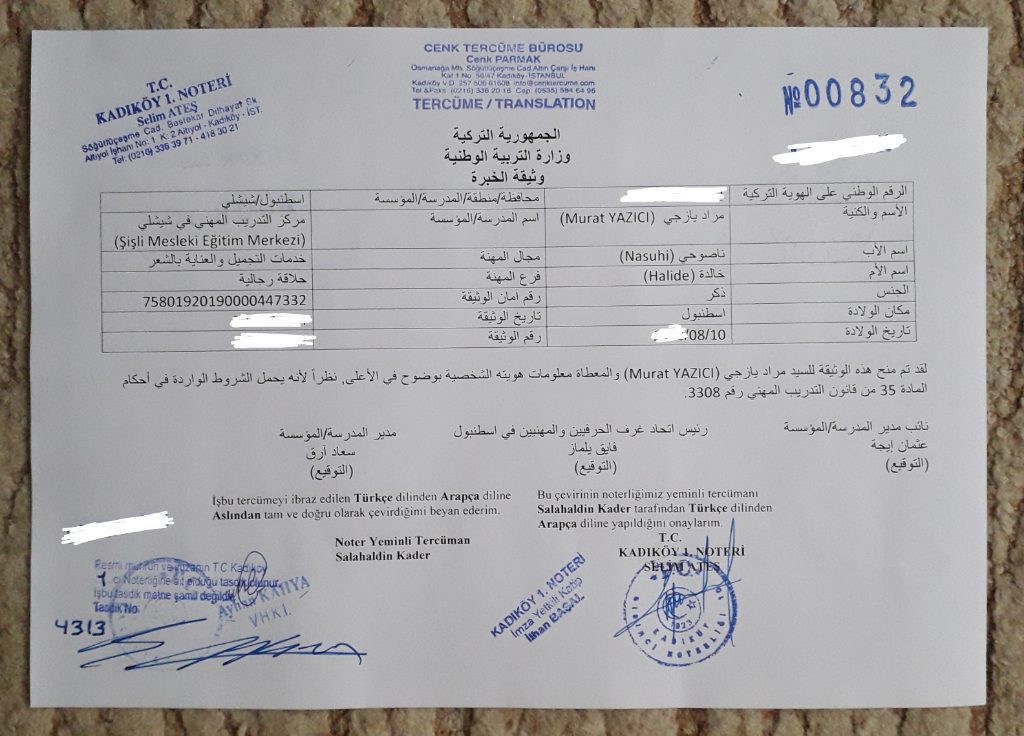 T.C.
KADIKÖY 1. NOTERİ
Selim ATEŞ
Söğütlüçeşme Cad. Bestekar Dilhayat Sk.
Altıyol İşhanı No: 1 K: 2 Altıyol - Kadıköy - İST.
Tel: (0216) 336 39 71 - 418 30 21
CENK TERCÜME BÜROSU
Cenk PARMAK
Osmanağa Mh. Söğütlüçeşme Cad.Altın Çarşı İş Hanı
Kat 1 No: 56/47 Kadıköy-İSTANBUL
Kadıköy V.D. 257 506 81608 info@cenktercume.com
Tel &Faks (0216) 336 20 16 Cep. (0535) 584 64 96
TERCÜME / TRANSLATION
№ 00832
الجمهورية التركية
وزارة التربية الوطنية
وثيقة الخبرة
الرقم الوطني على الهوية التركية
محافظة/منطقة/المدرسة/المؤسسة اسطنبول/شيشلي
الأسم والكنية مراد يازجي (Murat YAZICI) اسم المدرسة/المؤسسة مركز التدريب المهني في شيشلي
(Şişli Mesleki Eğitim Merkezi)
اسم الأب ناصوحي (Nasuhi) مجال المهنة خدمات التجميل والعناية بالشعر
اسم الأم خالدة (Halide) فرع المهنة حلاقة رجالية
الجنس ذكر رقم امان الوثيقة 75801920190000447332
مكان الولادة اسطنبول تاريخ الوثيقة
تاريخ الولادة /08/10 رقم الوثيقة
لقد تم منح هذه الوثيقة للسيد مراد يازجي (Murat YAZICI) والمعطاة معلومات هويته الشخصية بوضوح في الأعلى, نظراً لأنه يحمل الشروط الواردة في أحكام
المادة 35 من قانون التدريب المهني رقم 3308.
نائب مدير المدرسة/المؤسسة رئيس اتحاد غرف الحرفيين والمهنيين في اسطنبول مدير المدرسة/المؤسسة
عثمان إيجة فايق يلماز سعاد آرق
(التوقيع) (التوقيع) (التوقيع)
İşbu tercümeyi ibraz edilen Türkçe dilinden Arapça diline
Aslından tam ve doğru olarak çevirdiğimi beyan ederim.
Noter Yeminli Tercüman
Salahaldin Kader
Bu çevirinin noterliğimiz yeminli tercümanı
Salahaldin Kader tarafından Türkçe dilinden
Arapça diline yapıldığını onaylarım.
T.C.
KADIKÖY 1. NOTERİ
SELİM ATEŞ
Resmi mührün ve imzanın T.C Kadıköy
1 ci Noterliğine ait olduğu tasdik olunur.
İşbu tasdik metne şamil değildir.
Tasdik No:
4313
Ayhan KAHYA
V.H.K.İ.
KADIKÖY 1. NOTERİ
İmza Yetkili Katip
İlhan BAÇAL
T.C.
KADIKÖY
BİRİNCİ NOTERLİĞİ
1923